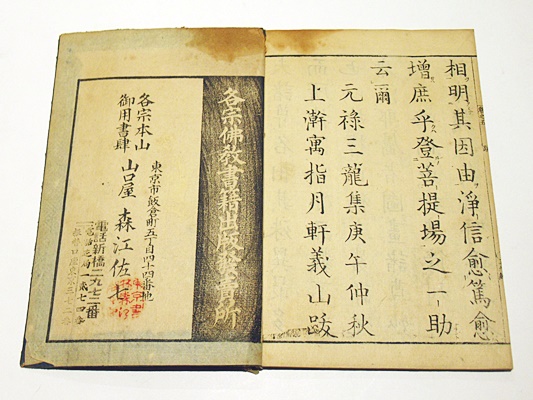 相明其因由淨信愈篤愈
増庶乎登菩提場之一助
云爾
元祿三龍集庚午仲秋
上澣寓指月軒義山跋
各宗佛教書籍出版發賣所
東京市飯倉町五丁目四十四番地
各宗本山
御用書肆
山口屋 森江佐七
電話新橋二九七二番